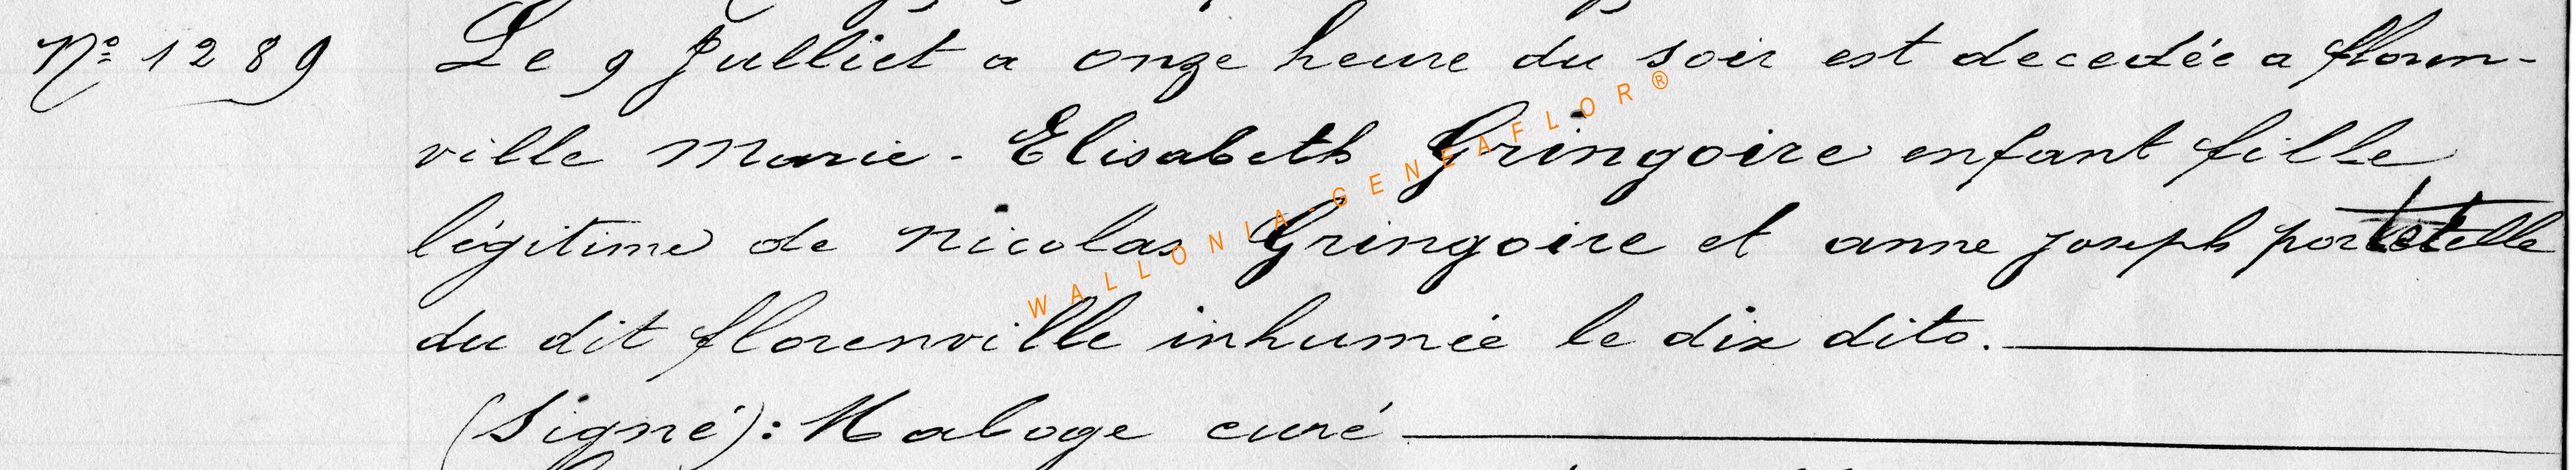 Nº 1289 Le 9 Julliet a onze heure du soir est decedée a floren-
ville Marie-Elisabeth Gringoire enfant fille
légitime de Nicolas Gringoire et anne joseph portetelle
du dit florenville inhumée le dix dito.
(Signé): Maboge curé
WALLONIA-GENEAFLOR®